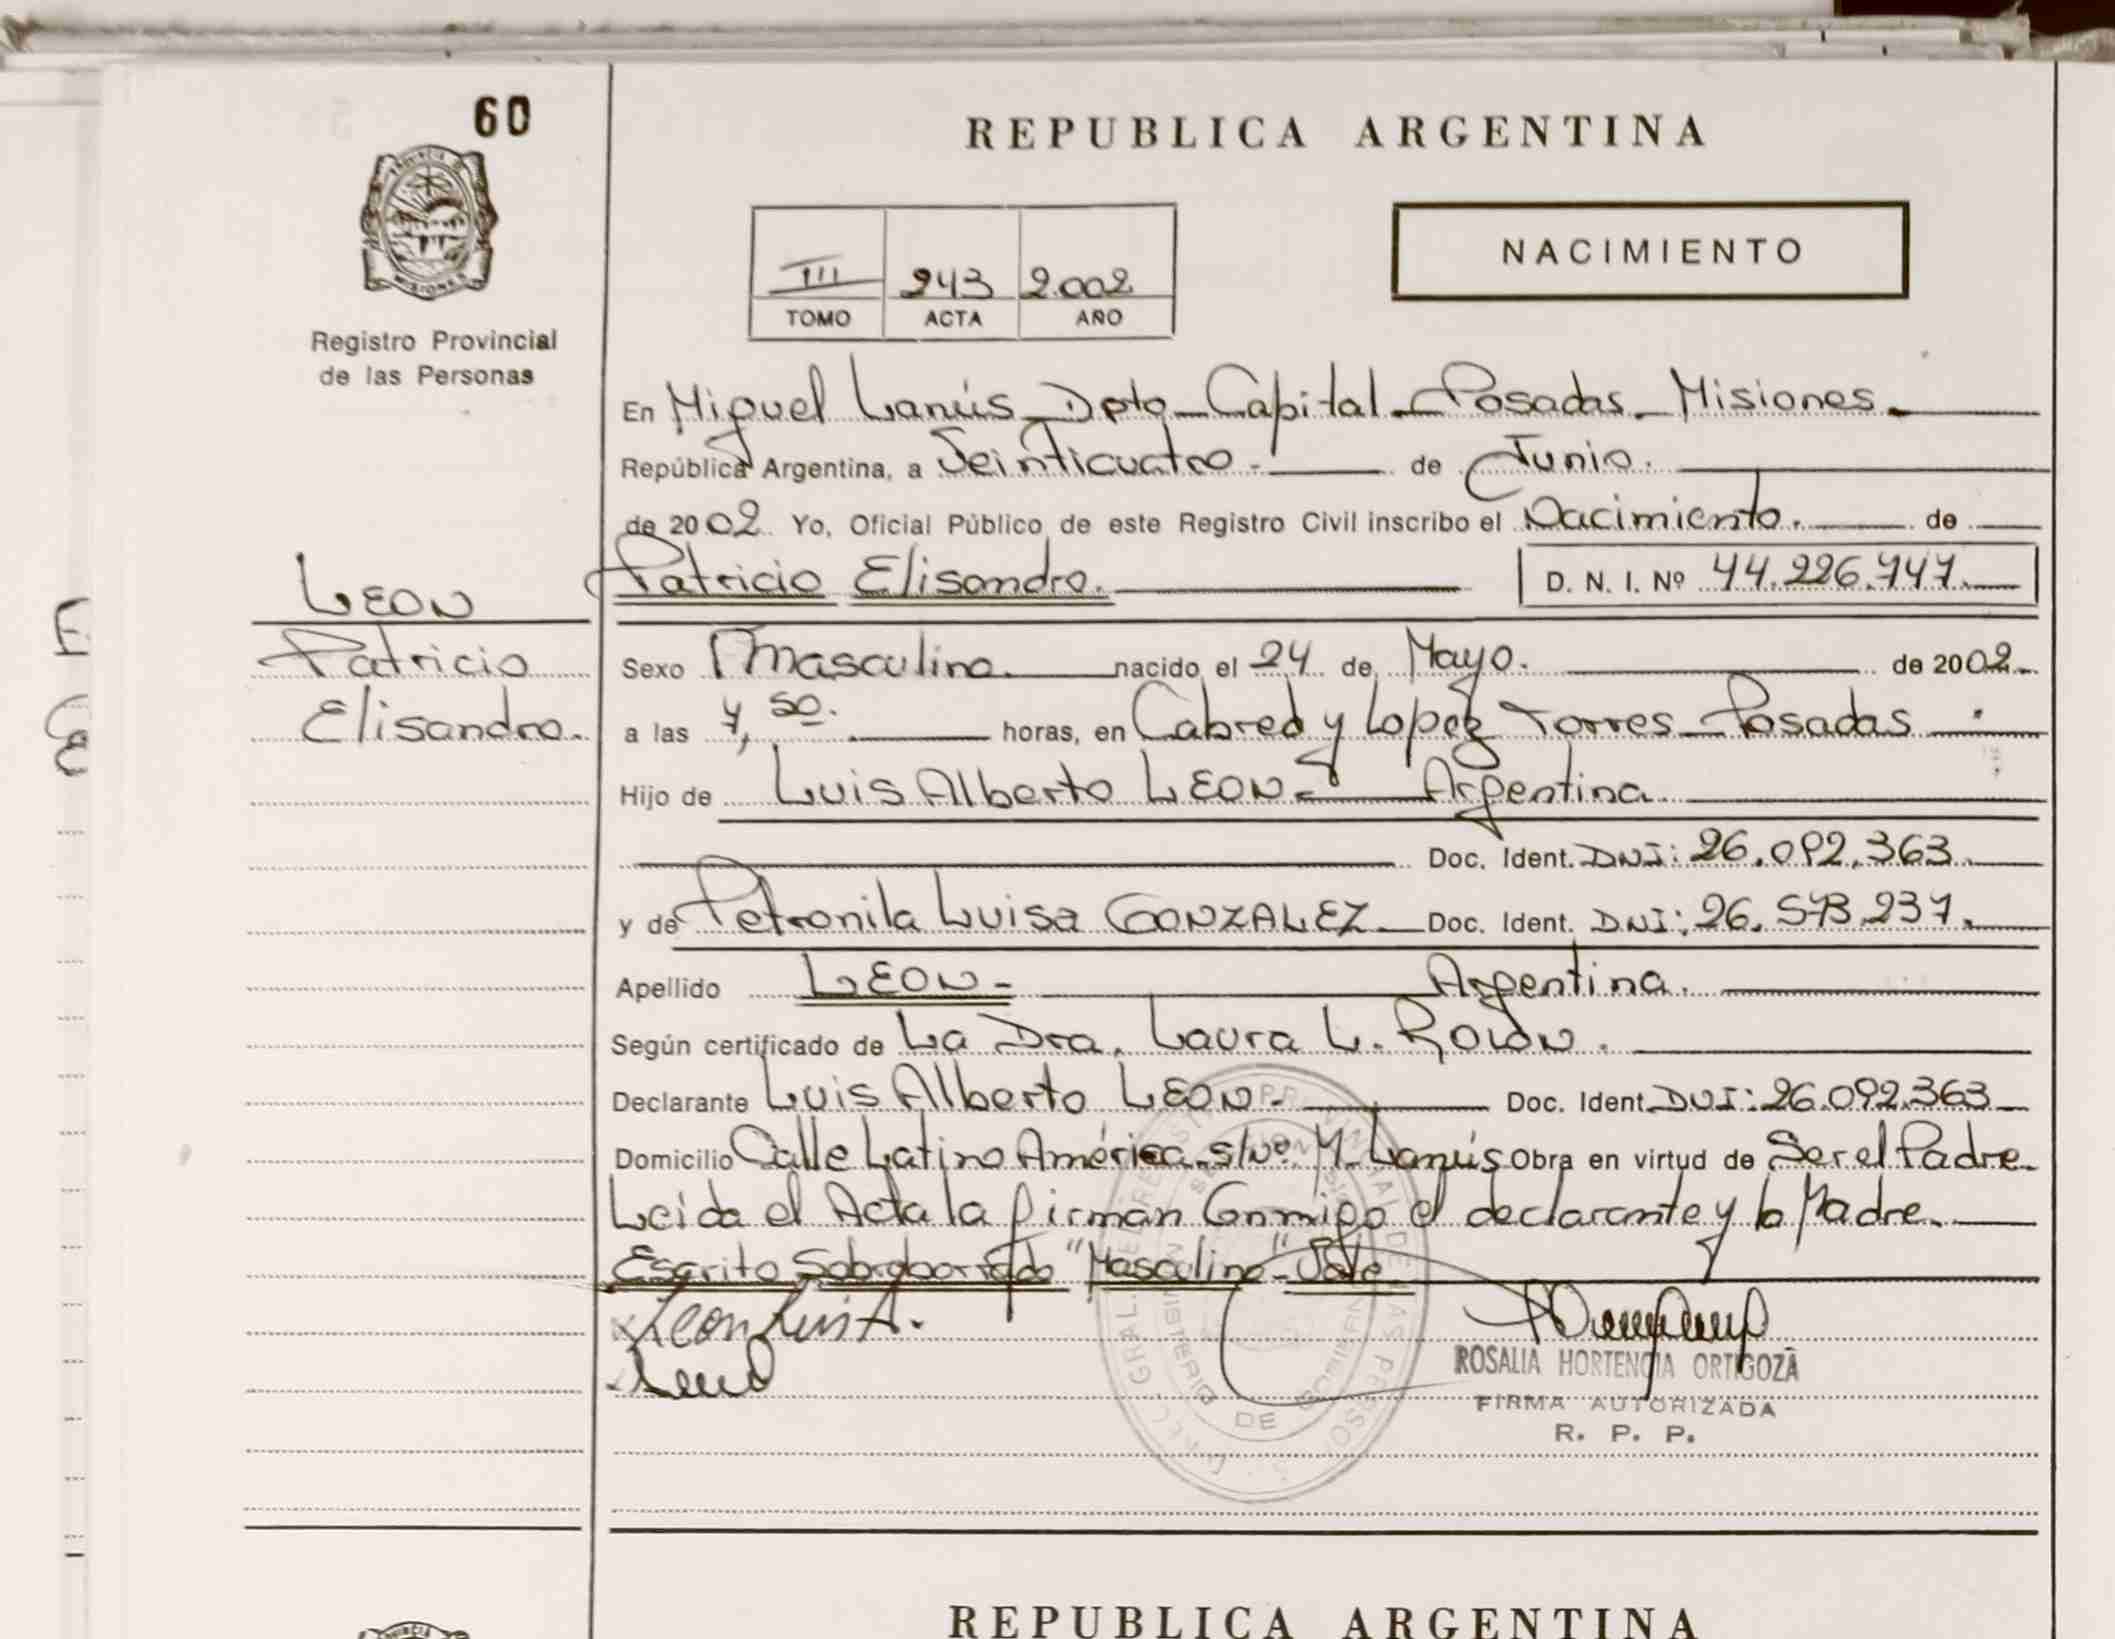 60
REPUBLICA ARGENTINA
PROVINCIA DE MISIONES
NACIMIENTO
III 243 2.002
TOMO ACTA AÑO
Registro Provincial
de las Personas
En Miguel Lanús - Dpto - Capital - Posadas - Misiones -
República Argentina, a Veinticuatro - de Junio.
de 2002. Yo, Oficial Público de este Registro Civil inscribo el Nacimiento. de
Patricio Elisandro. D. N. I. Nº 44.226.747.
LEON
Patricio
Elisandro.
Sexo Masculino. nacido el 24 de Mayo. de 2002.
a las 7, 50. horas, en Cabred y Lopez Torres - Posadas -
Hijo de Luis Alberto LEON - Argentina.
Doc. Ident. DNI: 26.092.363.
y de Petronila Luisa GONZALEZ - Doc. Ident. DNI: 26.573.237.
Apellido LEON - Argentina.
Según certificado de La Dra. Laura L. Rolón.
Declarante Luis Alberto LEON - Doc. Ident. DNI: 26.092.363
Domicilio Calle Latino América s/nº. M. Lanús Obra en virtud de Ser el Padre.
Leida el Acta la firman Conmigo el declarante y la Madre.
Escrito Sobreborrado "Masculino" - Vale
Leon Luis A.
ROSALIA HORTENCIA ORTIGOZA
FIRMA AUTORIZADA
R. P. P.
MINISTERIO DE GOBIERNO
REPUBLICA ARGENTINA